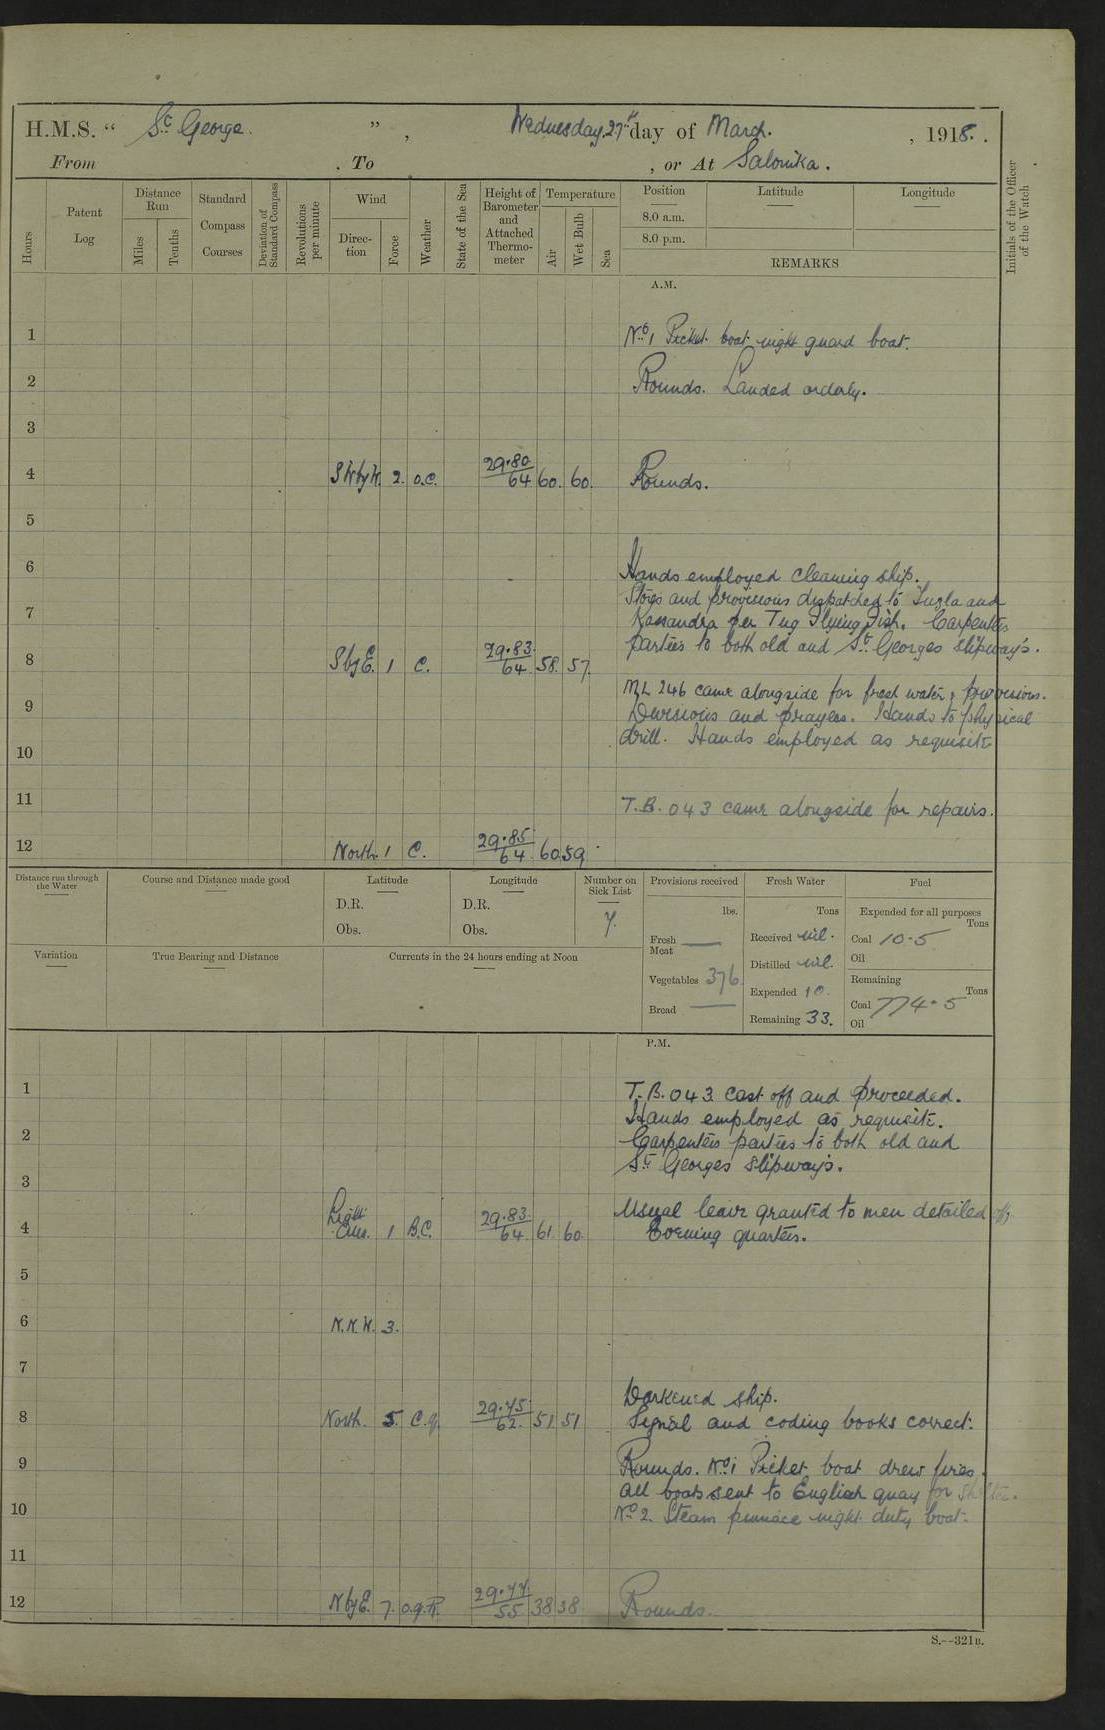 H.M.S. " St George. " , Wednesday, 27th day of March. , 1918.
From . To , or At Salonika.
Hours
Patent Log
Distance Run
Miles
Tenths
Standard Compass Courses
Deviation of Standard Compass
Revolutions per minute
Wind
Direction
Force
Weather
State of the Sea
Height of Barometer and Attached Thermometer
Temperature
Air
Wet Bulb
Sea
Position
8.0 a.m.
8.0 p.m.
Latitude
Longitude
REMARKS
Initials of the Officer of the Watch
A.M.
1 No 1 Picket boat night guard boat.
2 Rounds. Landed orderly.
3
4 SWbyW. 2. o.c. 29.80 64 60. 60. Rounds.
5
6 Hands employed cleaning ship.
Stores and provisions dispatched to Tuzla and
7 Kassandra per Tug Flying Fish. Carpenters
8 SbyE. 1 C. 29.83 64 58. 57. parties to both old and St Georges slipway's.
ML 246 came alongside for fresh water & provisions.
9 Divisions and prayers. Hands to physical
drill. Hands employed as requisite
10
11 T.B. 043 came alongside for repairs.
12 North. 1 C. 29.85 64 60 59
Distance run through the Water
Course and Distance made good
Latitude
D.R.
Obs.
Longitude
D.R.
Obs.
Number on Sick List
7.
Provisions received
lbs.
Fresh Meat —
Vegetables 376
Bread —
Fresh Water
Tons
Received nil.
Distilled nil.
Expended 10.
Remaining 33.
Fuel
Expended for all purposes
Tons
Coal 10.5
Oil
Remaining
Tons
Coal 774.5
Oil
Variation
True Bearing and Distance
Currents in the 24 hours ending at Noon
P.M.
1 T.B. 043 cast off and proceeded.
Hands employed as requisite.
2 Carpenters parties to both old and
St Georges slipway's.
3
Usual leave granted to men detailed off
4 Light Airs. 1 B.C. 29.83 64 61 60 Evening quarters.
5
6 N.N.W. 3.
7
Darkened ship.
8 North. 5. C.q. 29.75 62. 51 51 Signal and coding books correct.
9 Rounds. No 1 Picket boat drew fires.
all boats sent to English quay for shelter.
10 No 2. Steam pinnace night duty boat.
11
12 NbyE. 7. o.q.R. 29.77 55 38 38 Rounds.
S.—321B.